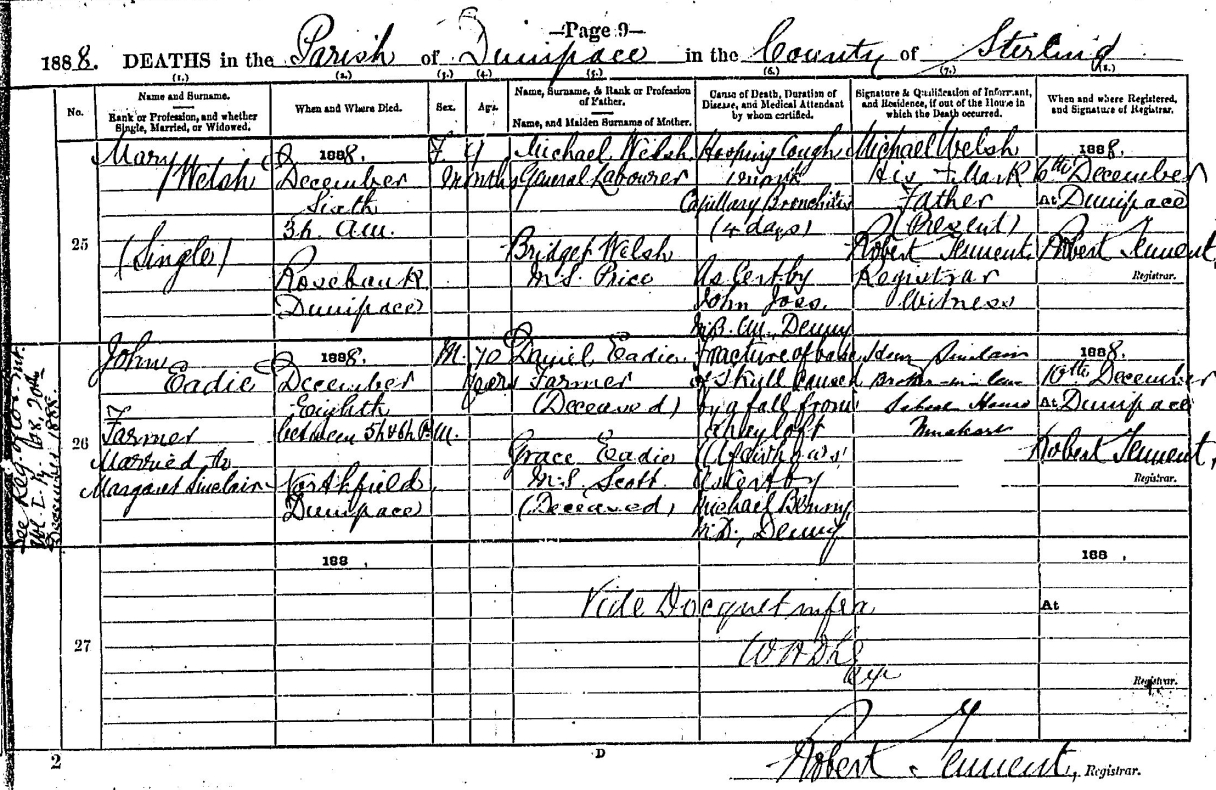 —Page 9—
1888. DEATHS in the Parish of Dunipace in the County of Sterling
(1.) (2.) (3.) (4.) (5.) (6.) (7.) (8.)
No.
Name and Surname.
Rank or Profession, and whether
Single, Married, or Widowed.
When and Where Died.
Sex.
Age.
Name, Surname, & Rank or Profession
of Father.
Name, and Maiden Surname of Mother.
Cause of Death, Duration of
Disease, and Medical Attendant
by whom certified.
Signature & Qualification of Informant,
and Residence, if out of the House in
which the Death occurred.
When and where Registered,
and Signature of Registrar.
25
Mary
Welsh
(Single)
1888.
December
Sixth
3h. A.M.
Rosebank
Dunipace
F
9
Months
Michael Welsh
General Labourer
Bridget Welsh
M.S. Price
Hooping Cough
1 month
Capillary Bronchitis
(4 days)
As Cert by
John Joss
M.B. C.M. Denny
Michael Welsh
His + Mark
Father
(Present)
Robert Tennent
Registrar
Witness
1888.
6th December
At Dunipace
Robert Tennent,
Registrar.
26
John
Eadie
Farmer
Married to
Margaret Sinclair
1888.
December
Eighth
between 5h & 6h P.M.
Northfield
Dunipace
M.
70
Years
Daniel Eadie
Farmer
(Deceased)
Grace Eadie
M.S. Scott
(Deceased)
Fracture of base
of Skull caused
by a fall from
a hayloft
As Cert by
Michael Benny
M.D., Denny
Sinclair
Brother-in-law
School House
Muckart
1888.
10th December
At Dunipace
Robert Tennent,
Registrar.
See Reg. of Cor. Ent.
Vol I, P. 68, 20th
December 1888
27
188 ,
Vide Docquet infra
188 ,
At
Registrar.
2
D
Robert Tennent, Registrar.